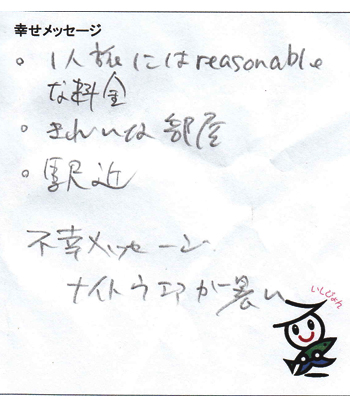 幸せメッセージ
。1人旅にはreasonable
な料金
。きれいな部屋
。駅近
不幸メッセージ
ナイトウエアが暑い
いしじょん